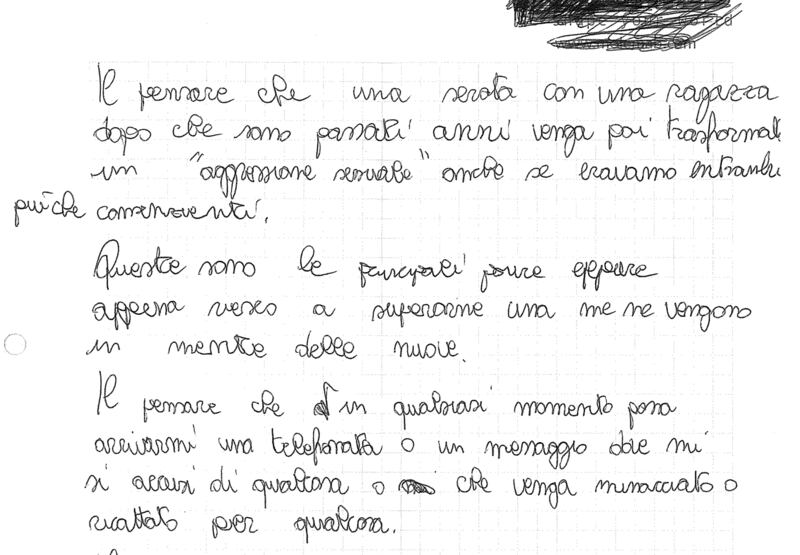 Il pensare che una serata con una ragazza
dopo che sono passati anni venga poi trasformata
in "aggressione sessuale" anche se eravamo entrambi
più che consenzienti.
Queste sono le principali paure eppure
appena riesco a superarne una me ne vengono
in mente delle nuove.
Il pensare che in qualsiasi momento possa
arrivarmi una telefonata o un messaggio dove mi
si accusi di qualcosa o che venga minacciato o
ricattato per qualcosa.